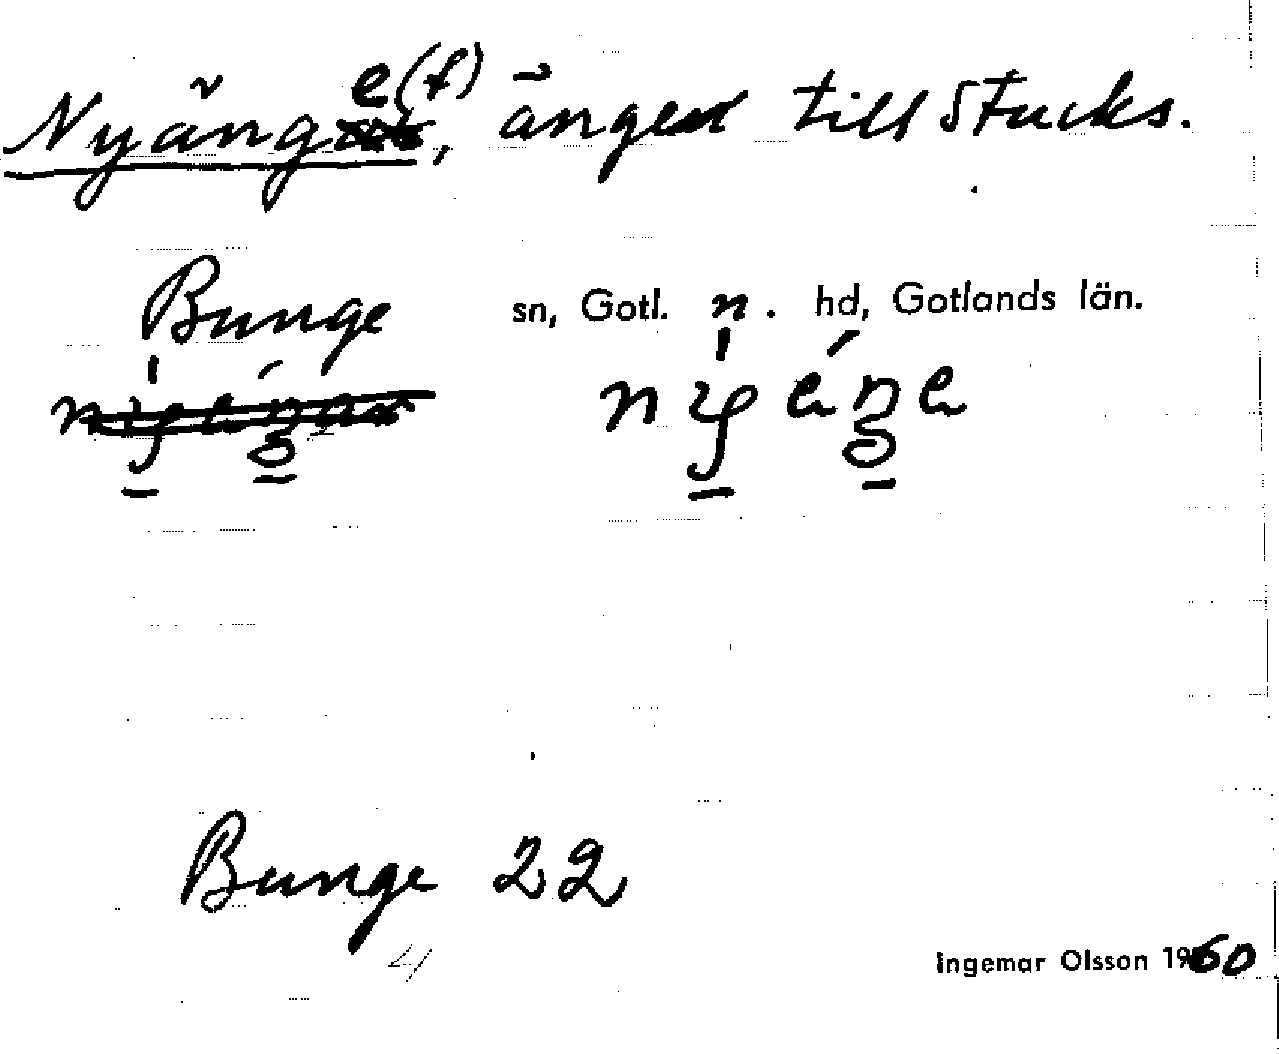 Nyänge (f), ängen till Stucks.
Bunge sn, Gotl. n. hd, Gotlands län.
Bunge 22
Ingemar Olsson 1960